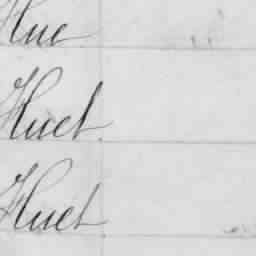 Hue
Huet
Huet